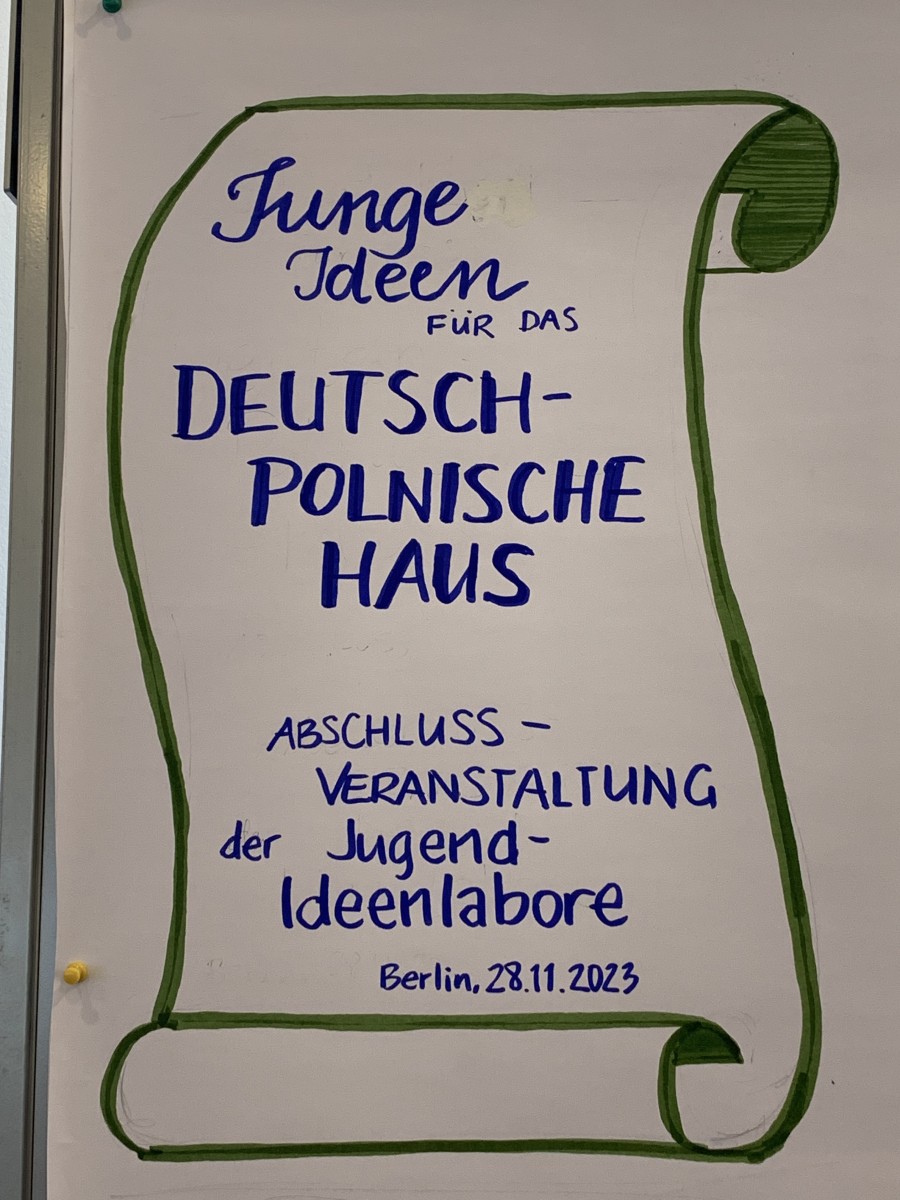 Junge
Ideen
FÜR DAS
DEUTSCH-
POLNISCHE
HAUS
ABSCHLUSS-
VERANSTALTUNG
der Jugend-
Ideenlabore
Berlin, 28.11.2023